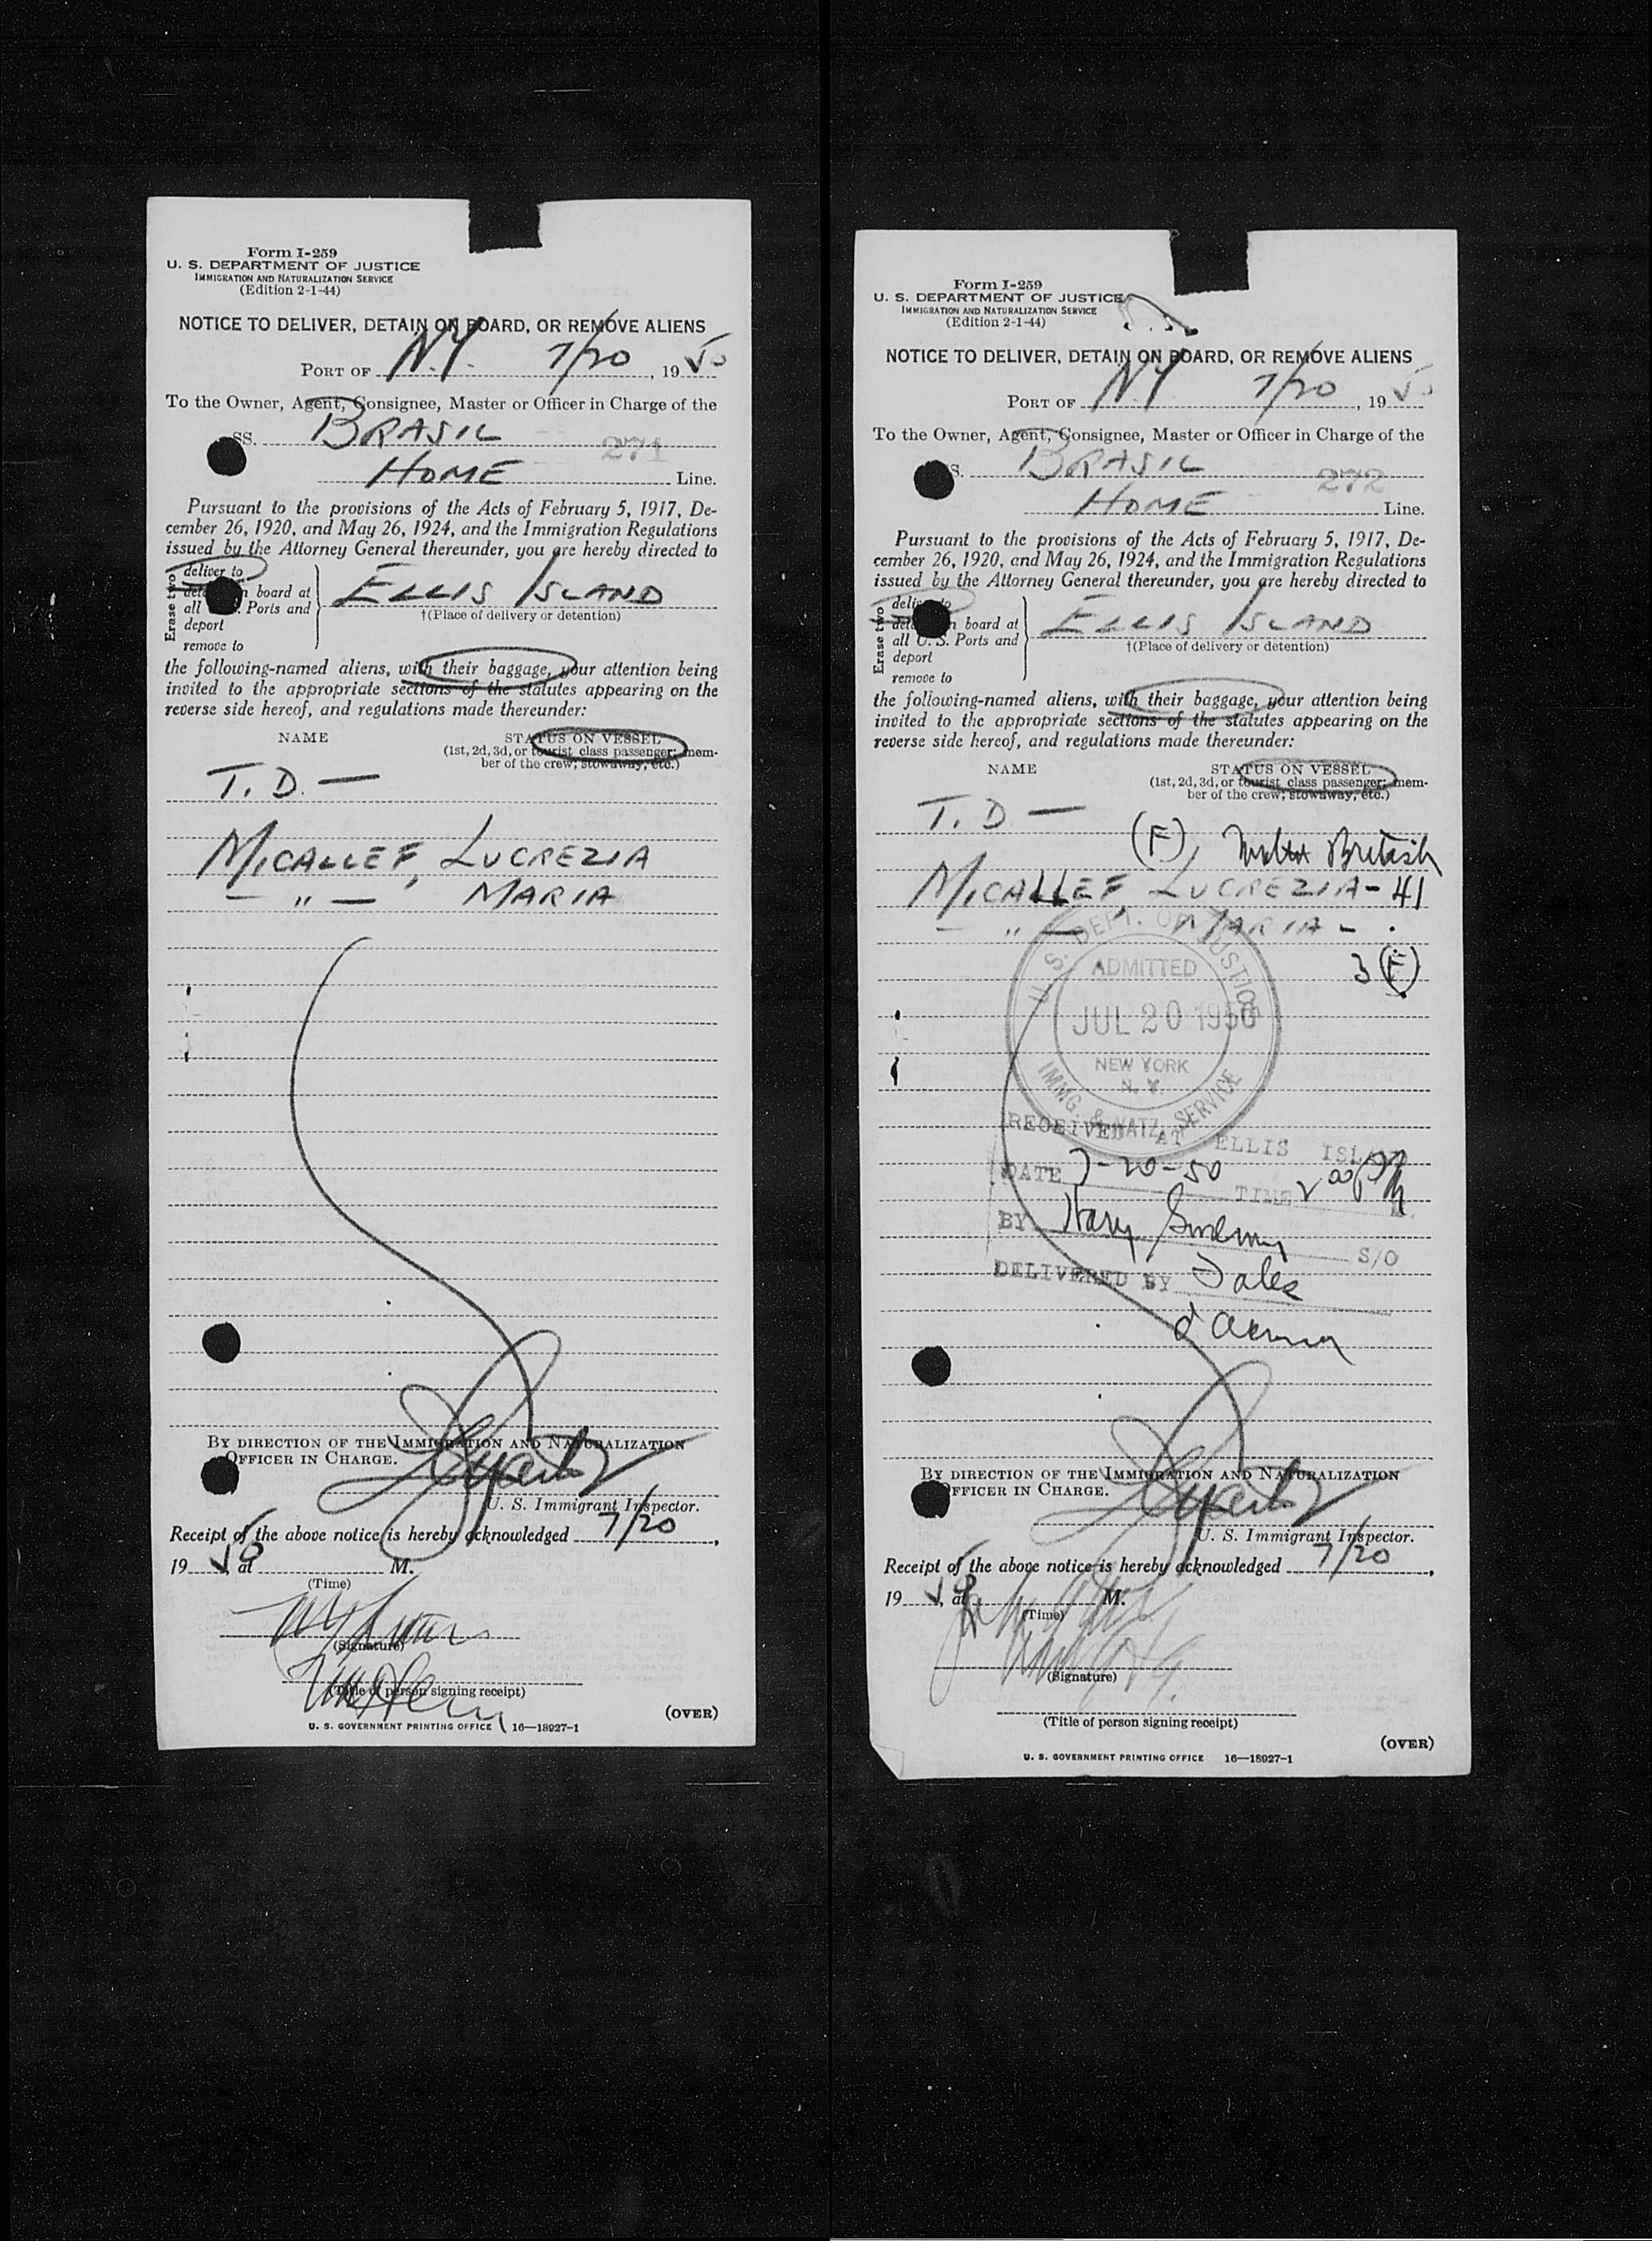 Form I-259
U. S. DEPARTMENT OF JUSTICE
IMMIGRATION AND NATURALIZATION SERVICE
(Edition 2-1-44)
NOTICE TO DELIVER, DETAIN ON BOARD, OR REMOVE ALIENS
PORT OF N.Y. 7/20, 19 50
To the Owner, Agent, Consignee, Master or Officer in Charge of the
SS. BRASIL 271
HOME Line.
Pursuant to the provisions of the Acts of February 5, 1917, De-
cember 26, 1920, and May 26, 1924, and the Immigration Regulations
issued by the Attorney General thereunder, you are hereby directed to
Erase two
deliver to
board at
all Ports and
deport
remove to
ELLIS ISLAND
†(Place of delivery or detention)
the following-named aliens, with their baggage, your attention being
invited to the appropriate sections of the statutes appearing on the
reverse side hereof, and regulations made thereunder:
NAME STATUS ON VESSEL
(1st, 2d, 3d, or tourist class passenger; mem-
ber of the crew; stowaway, etc.)
T. D. —
MICALLEF, LUCREZIA
— " — MARIA
BY DIRECTION OF THE IMMIGRATION AND NATURALIZATION
OFFICER IN CHARGE.
U. S. Immigrant Inspector.
Receipt of the above notice is hereby acknowledged 7/20,
19 50, at M.
(Time)
(Signature)
(Title of person signing receipt)
(OVER)
U. S. GOVERNMENT PRINTING OFFICE 16—18927-1
Form I-259
U. S. DEPARTMENT OF JUSTICE
IMMIGRATION AND NATURALIZATION SERVICE
(Edition 2-1-44)
NOTICE TO DELIVER, DETAIN ON BOARD, OR REMOVE ALIENS
PORT OF NY 7/20, 19 50
To the Owner, Agent, Consignee, Master or Officer in Charge of the
S. BRASIL 272
HOME Line.
Pursuant to the provisions of the Acts of February 5, 1917, De-
cember 26, 1920, and May 26, 1924, and the Immigration Regulations
issued by the Attorney General thereunder, you are hereby directed to
Erase two
deliver to
board at
all U. S. Ports and
deport
remove to
ELLIS ISLAND
†(Place of delivery or detention)
the following-named aliens, with their baggage, your attention being
invited to the appropriate sections of the statutes appearing on the
reverse side hereof, and regulations made thereunder:
NAME STATUS ON VESSEL
(1st, 2d, 3d, or tourist class passenger; mem-
ber of the crew; stowaway, etc.)
T. D —
(F) British
MICALLEF, LUCREZIA - 41
— " — MARIA -
3 (F)
U. S. DEPT. OF JUSTICE
ADMITTED
JUL 20 1950
NEW YORK
N. Y.
IMMG. & NATZ. SERVICE
RECEIVED AT ELLIS ISLAND
DATE 7-20-50 TIME 2 00 PM
BY S/O
DELIVERED BY
BY DIRECTION OF THE IMMIGRATION AND NATURALIZATION
OFFICER IN CHARGE.
U. S. Immigrant Inspector.
Receipt of the above notice is hereby acknowledged 7/20,
19 50, at M.
(Time)
(Signature)
(Title of person signing receipt)
(OVER)
U. S. GOVERNMENT PRINTING OFFICE 16—18927-1